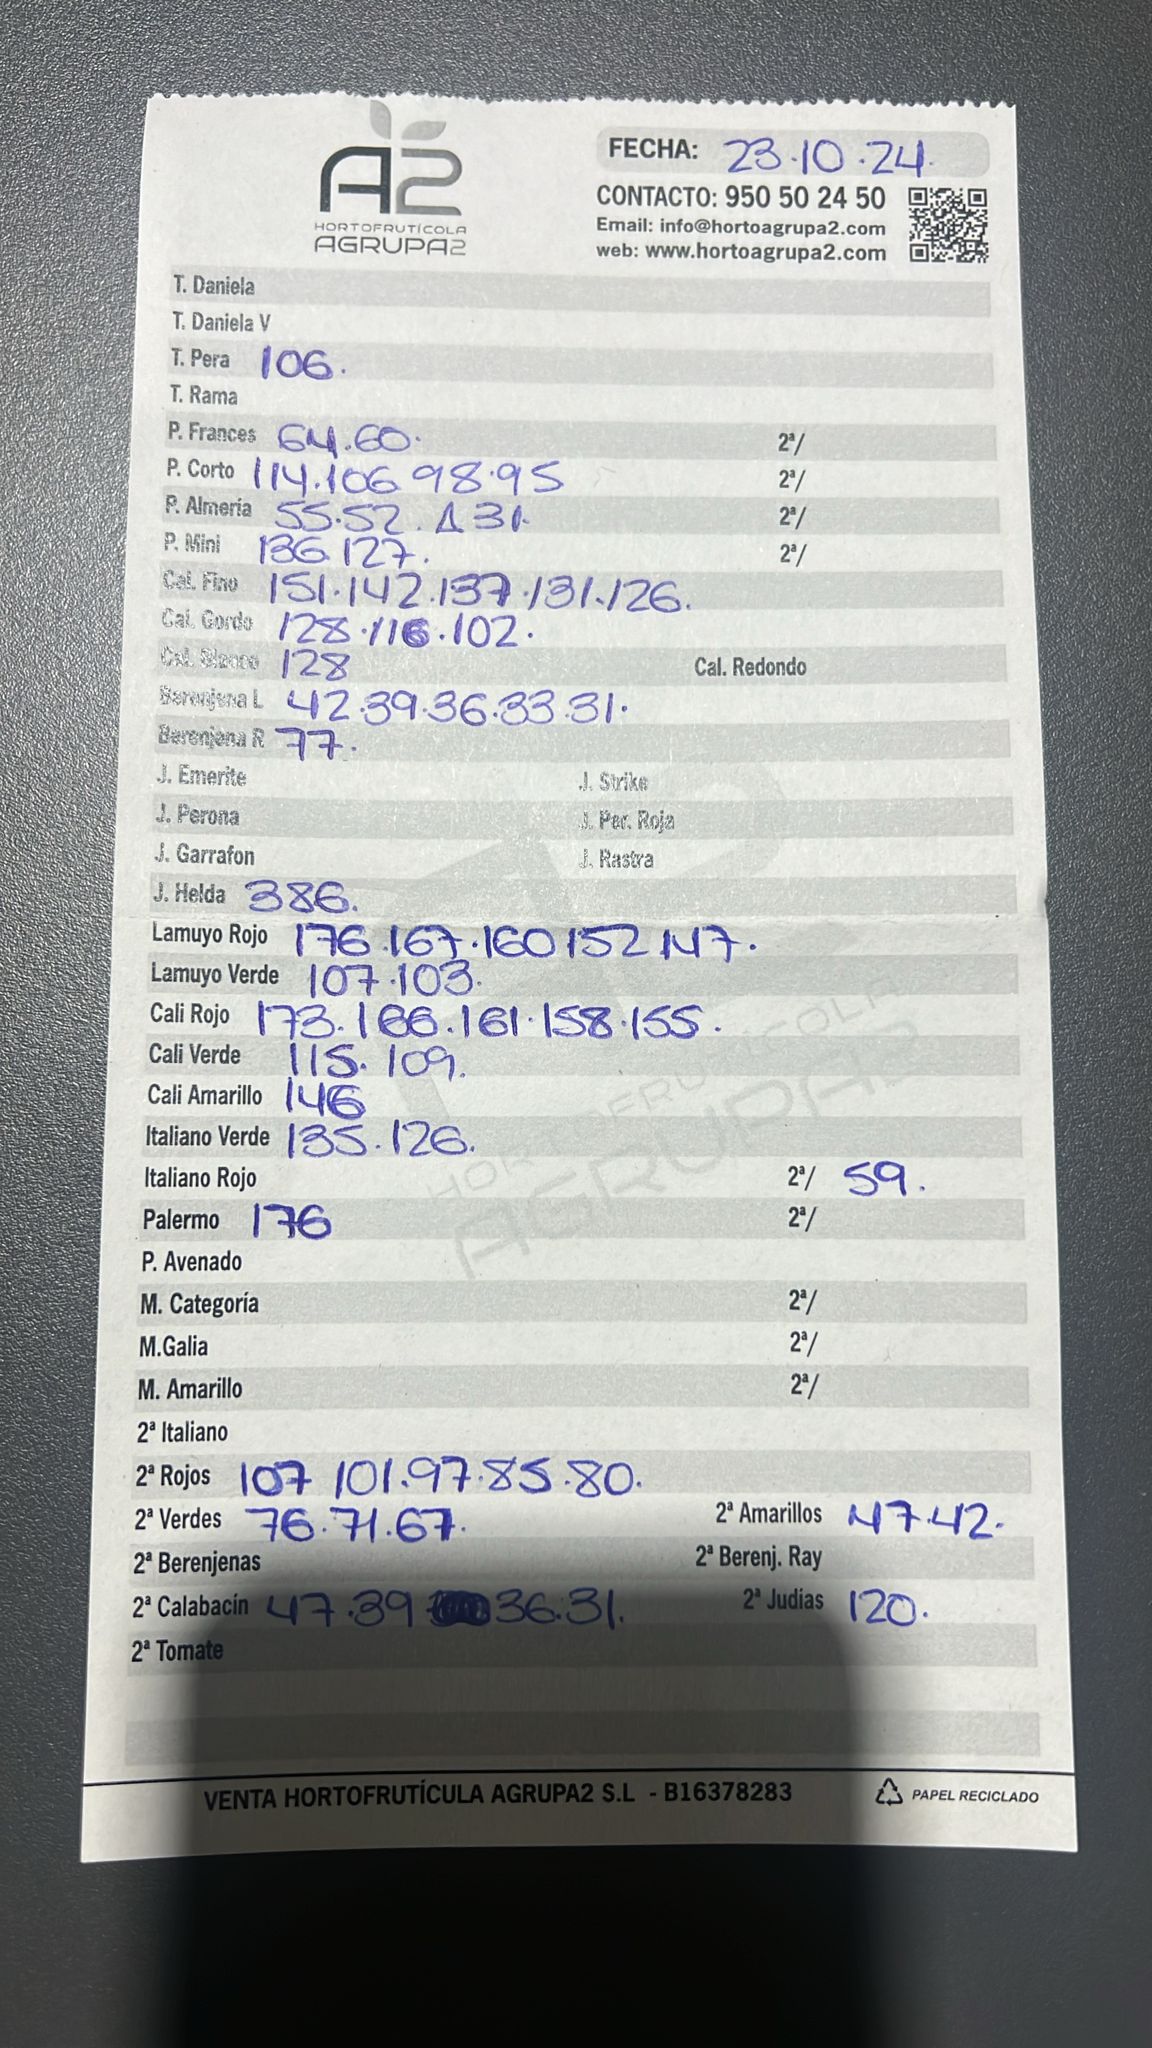 A2
HORTOFRUTÍCOLA
AGRUPA2
FECHA: 23.10.24.
CONTACTO: 950 50 24 50
Email: info@hortoagrupa2.com
web: www.hortoagrupa2.com
T. Daniela
T. Daniela V
T. Pera 106.
T. Rama
P. Frances 64.60. 2ª/
P. Corto 114.106.98.95 2ª/
P. Almería 55.52. A 31. 2ª/
P. Mini 136.127. 2ª/
Cal. Fino 151.142.137.131.126.
Cal. Gordo 128.116.102.
Cal. Blanco 128 Cal. Redondo
Berenjena L 42.39.36.33.31.
Berenjena R 77.
J. Emerite J. Strike
J. Perona J. Per. Roja
J. Garrafon J. Rastra
J. Helda 386.
Lamuyo Rojo 176.167.160 152 147.
Lamuyo Verde 107.103.
Cali Rojo 173.166.161.158.155.
Cali Verde 115.109.
Cali Amarillo 146
Italiano Verde 135.126.
Italiano Rojo 2ª/ 59.
Palermo 176 2ª/
P. Avenado
M. Categoría 2ª/
M.Galia 2ª/
M. Amarillo 2ª/
2ª Italiano
2ª Rojos 107 101.97.85.80.
2ª Verdes 76.71.67. 2ª Amarillos 47.42.
2ª Berenjenas 2ª Berenj. Ray
2ª Calabacín 47.39 36.31. 2ª Judias 120.
2ª Tomate
VENTA HORTOFRUTÍCULA AGRUPA2 S.L - B16378283 PAPEL RECICLADO